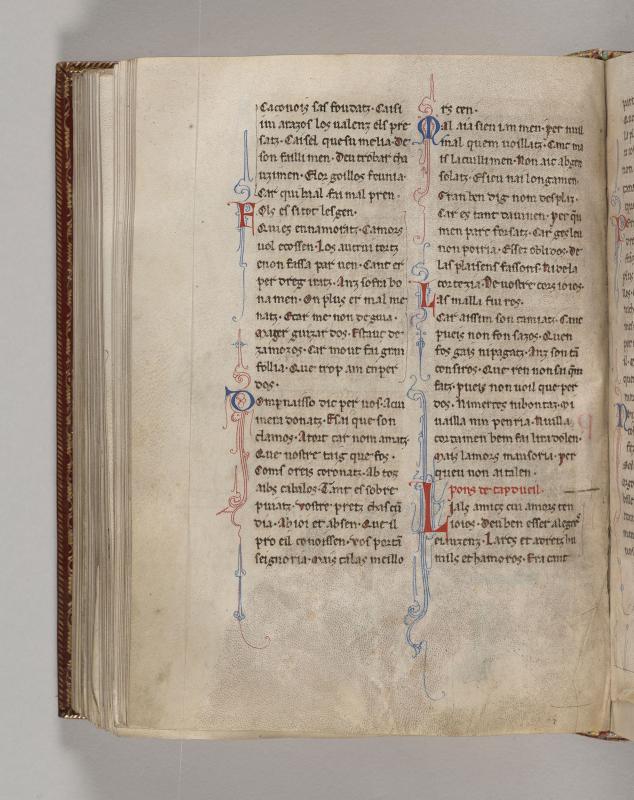 Caconois sas foudatz. Caisi
im arazos los ualenz els pre
satz. Caisel que su melia. De
son failli men. Deu trobar cha
uzimen. Elor goillos feunia.
Car qui baal fai mal pren.
Fols es si tot les gen.
Qui es ennamoratz. Camors
uol cossen. Los autrui tortz
enon fassa par uen. Cant er
per dreg iratz. Anz sofra bo
na men. On plus er mal me
natz. Et car me non deguia.
Mager guizar dos. Estauc de
zamoros. Car mout fai gran
follia. Que trop am en per
dos.
Dompnaisso dic per uos. Acui
mera donatz. Esai que son
clamos. A tort car nom amatz.
Que nostre taig que fos.
Coms oreis coronatz. Ab toz
aibs cabalos. Tant es sobre
puiatz. Vostre pretz chascun
dia. Ab ioi et ab sen. Que il
pro eil conoissen. Vos porton
seignoria. Mais calas meillo
rs cen.
Mal aia sien iam men. per null
mal quem uoillatz. Cuic ma
is lacuillimen. Non aic ab gen
solatz. Esieu nai longamen.
Gran ben dig nom desplaz.
Car es tant dauinen. per qu
men parc forsatz. Car ges leu
non poiria. Esser oblidos. De
las plaisens faissons. Ni de la
cortezia. De uostre cors ioios.
Las mallafui ros.
Car aissim son camiatz. Cuic
pueis non fon sazos. Quen
fos gais ni pagatz. Anz son tan
consiros. Que ren non su quem
fatz. pueis non uoil que per
dos. Ni merces ni bontatz. Mi
uailla nin penria. Ni ualla
cortamen ben fai latudolen.
Mais lamors mausoria. per
queu non ai talen.
pons de capdueil.
Lials amics cui amors ten
ioios. Deu ben esser alegres
eiauzenz. Larcs et adreis hu
mils et hamoros. Era cant